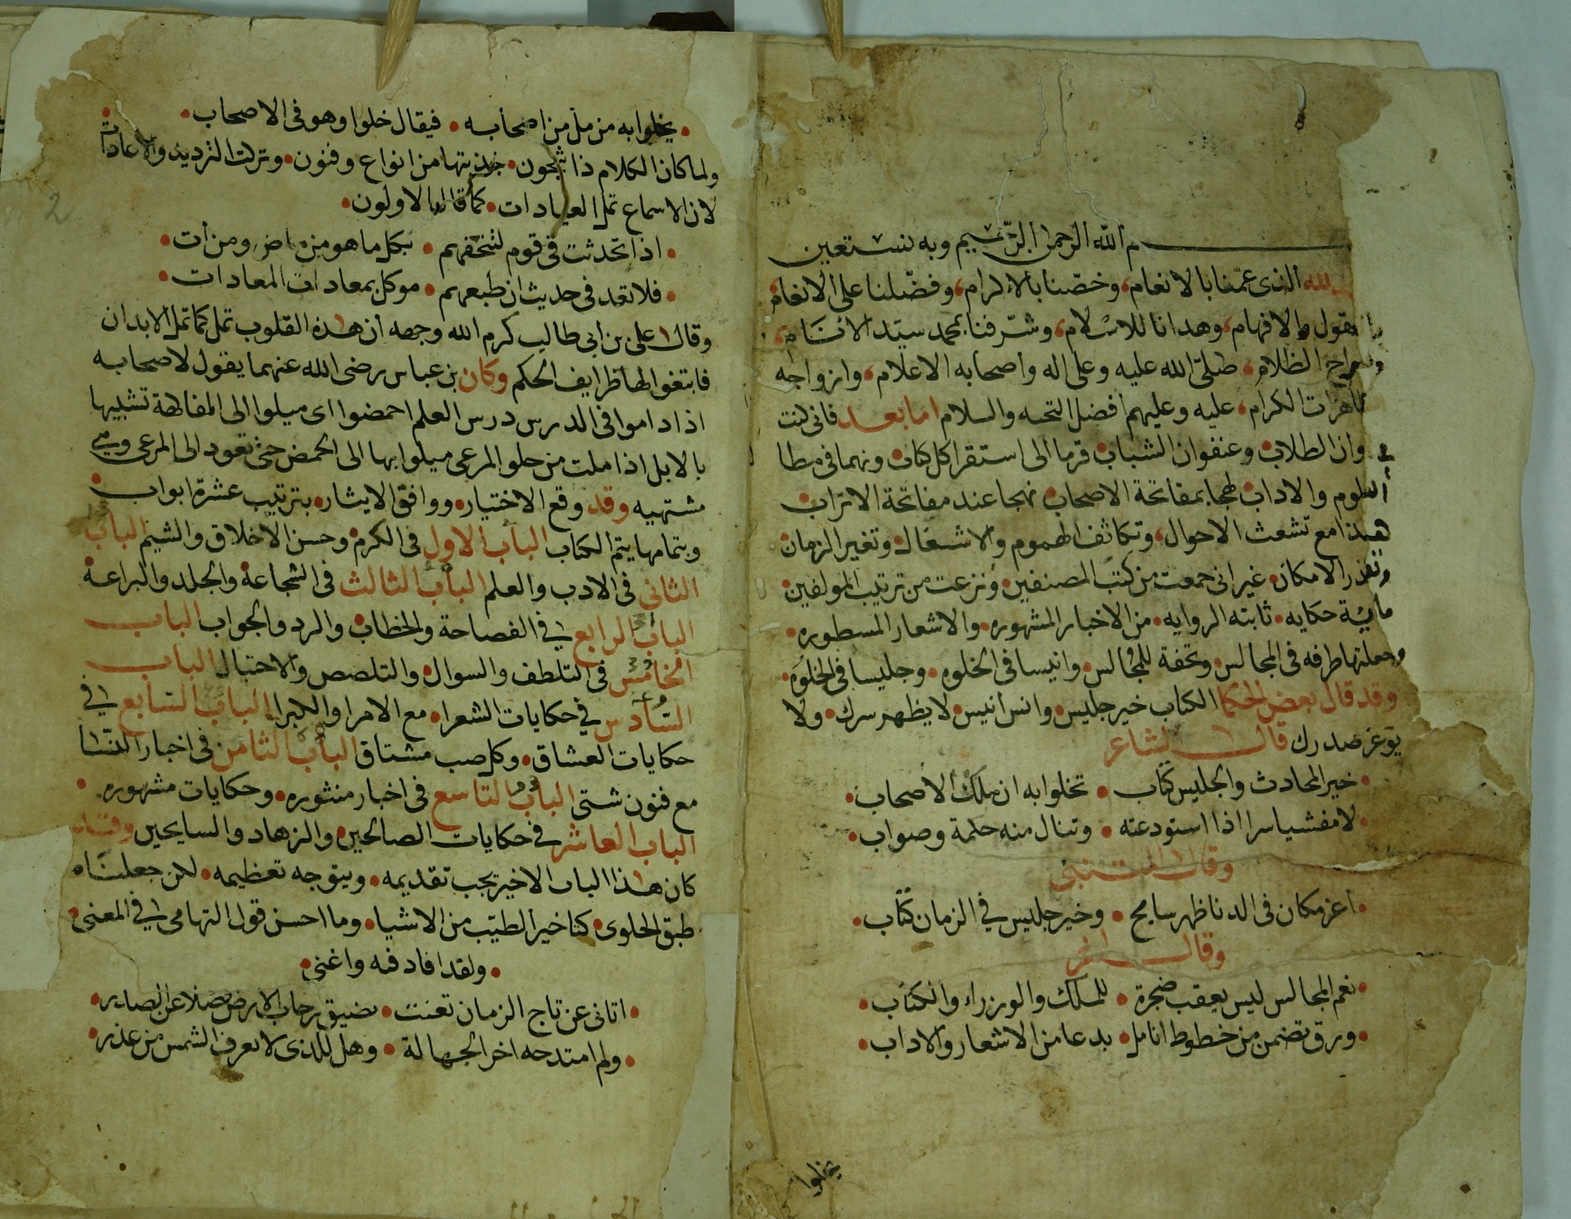 بسم الله الرحمن الرحيم وبه نستعين
لله الذى عمنا بالانعام، وخصنا بالاكرام، وفضلنا على الانعام
بالعقول والافهام، وهدانا للاسلام، وشرفنا بمحمد سيد الانام،
وسراج الظلام، صلى الله عليه وعلى اله واصحابه الاعلام، وازواجه
الطاهرات الكرام، عليه وعليهم افضل التحيه والسلام اما بعد فانى كنت
فى اوان الطلاب وعنفوان الشباب قرما الى استقرا كل كتاب ونهما فى مطا
العلوم والاداب لهجا بمفاتحة الاصحاب نهجا عند مفاتحة الاتراب
هذا مع تشعث الاحوال، وتكاثف الهموم والاشغال وتغير الزمان
وتعذر الامكان غير انى جمعت من كتب المصنفين ونزعت من ترتيب المولفين
مايئة حكايه ثابته الروايه من الاخبار المشهوره والاشعار المسطوره
وجعلتها طرفه فى المجالس وتحفة للمجالس وانيسا فى الخلوه وجليسا فى الخلوه
وقد قال بعض الحكما الكتاب خير جليس وانس انيس لا يظهر سرك ولا
يوغر صدرك قال الشاعر
خير المحادث والجليس كتاب تخلوا به ان ملك الاصحاب
لا مفشيا سرا اذا استودعته وتنال منه حكمة وصواب
وقال المتنبى
اعز مكان فى الدنا ظهر سابح وخير جليس في الزمان كتاب
وقال اخر
نعم المجالس ليس يعقب ضجرة للملك والوزراء والكتاب
ورق تضمن من خطوط انامل بدعا من الاشعار والاداب
يخلوا
يخلوا به من مل من اصحابه فيقال خلوا وهو فى الاصحاب
ولما كان الكلام ذا شجون خزنتها من انواع وفنون وتركت الترديد والاعادات
لان الاسماع تمل العيادات كما قال الاولون
اذا تحدثت فى قوم لتتحفهم بكل ما هو من ماض ومن آت
فلا تعد فى حديث ان طبعهم موكل بمعادات المعادات
وقال على بن ابى طالب كرم الله وجهه ان هذه القلوب تمل كما تمل الابدان
فابتغوا لها ظرايف الحكم وكان بن عباس رضى الله عنهما يقول لاصحابه
اذا داموا فى الدرس درس العلم احمضوا اى ميلوا الى المفاكهة تشبيها
بالابل اذا ملت من حلو المرعى ميلوا بها الى الحمض حتى تعود الى المرعى وهى
مشتهيه وقد وقع الاختيار ووافق الايثار بترتيب عشرة ابواب
وبتمامها يتم الكتاب الباب الاول فى الكرم وحسن الاخلاق والشيم الباب
الثانى فى الادب والعلم الباب الثالث فى الشجاعة والجلد والبراعة
الباب الرابع في الفصاحة والخطاب والرد والجواب الباب
الخامس فى التلطف والسوال والتلصص والاحتيال الباب
السادس في حكايات الشعرا مع الامرا والكبرا الباب السابع في
حكايات العشاق وكل صب مشتاق الباب الثامن فى اخبار النسا
مع فنون شتى الباب التاسع فى اخبار منثوره وحكايات مشهوره
الباب العاشر فى حكايات الصالحين والزهاد والسايحين وقد
كان هذا الباب الاخير يجب تقديمه ويتوجه تعظيمه لكن جعلناه
طبق الحلوى كتاخير الطيب من الاشيا وما احسن قول التهامى في المعنى
ولقد افاد فيه واغنى
اتانى عن تاج الزمان تعنت يضيق رحاب الارض فضلا عن الصدر
ولم امتدحه اخر الجهالة وهل للذى لا يعرف الشمس من عذر
2